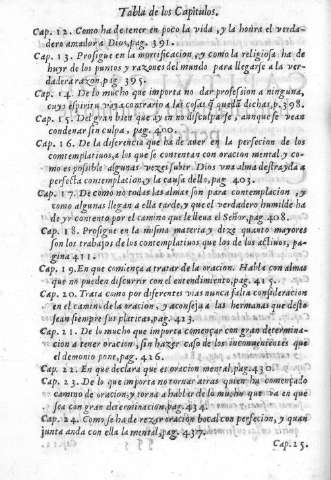 Tabla de los Capitulos.
Cap. 12. Como ha de tener en poco la vida, y la honra el verda-
dero amador a Dios, pag. 391.
Cap. 13. Prosigue en la mortificacion, y como la religiosa ha de
huyr de los puntos y razones del mundo para llegarse a la ver-
dadera razon, pag. 395.
Cap. 14. De lo mucho que importa no dar profession a ninguna,
cuyo espiritu vaya contrario a las cosas q quedã dichas, p. 398.
Cap. 15. Del gran bien que ay en no disculparse, aunque se vean
condenar sin culpa, pag. 400.
Cap. 16. De la diferencia que ha de auer en la perfecion de los
contemplatiuos, a los que se contentan con oracion mental y co-
mo es posible algunas vezes subir Dios vna alma destrayda a
perfecta contemplacion, y la causa dello, pag 403.
Cap. 17. De como no todas las almas son para contemplacion, y
como algunas llegan a ella tarde, y que el verdadero humilde ha
de yr contento por el camino que le lleua el Señor, pag. 408.
Cap. 18. Prosigue en la misma materia, y dize quanto mayores
son los trabajos de los contemplatiuos que los de los actiuos, pa-
gina 411.
Cap. 19. En que comiença a tratar de la oracion. Habla con almas
que no pueden discurrir con el entendimiento, pag. 415.
Cap. 20. Trata como por diferentes vias nunca falta consideracion
en el camino de la oracion, y aconseja a las hermanas que desto
sean siempre sus platicas, pag. 423.
Cap. 21. De lo mucho que importa començar con gran determina-
cion a tener oracion, sin hazer caso de los inconuenientes que
el demonio pone, pag. 426.
Cap. 22. En que declara que es oracion mental, pag. 430.
Cap. 23. De lo que importa no tornar atras quien ha començado
camino de oracion: y torna a hablar de lo mucho que va en que
sea con gran determinacion, pag. 434.
Cap. 24. Como se ha de rezar oracion bocal con perfecion, y quan
junta anda con ella la mental, pag. 437.
Cap. 25.